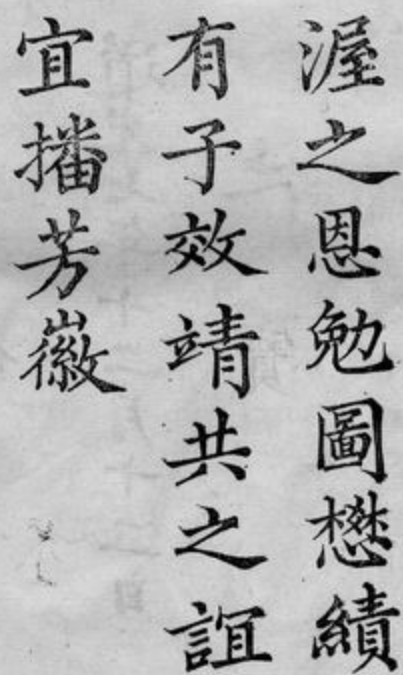 渥之恩勉圖懋績
有子效靖共之誼
宜播芳徽